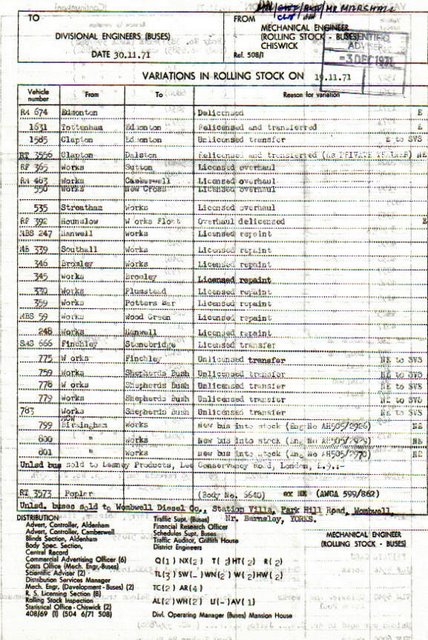 TO
DIVISIONAL ENGINEERS (BUSES)
DATE 30.11.71
FROM
MECHANICAL ENGINEER
(ROLLING STOCK - BUSES)
CHISWICK
Ref. 508/1
SCIENTIFIC
ADVISER
-3 DEC 1971
VARIATIONS IN ROLLING STOCK ON 19.11.71
Vehicle number From To Reason for variation
RM 674 Edmonton Delicensed E
1631 Tottenham Edmonton Relicensed and transferred E
1585 Clapton Edmonton Unlicensed transfer E to SVS
RT 3556 Clapton Dalston Relicensed and transferred NE
RF 365 Works Sutton Licensed overhaul
RM 403 Works Camberwell Licensed overhaul
550 Works New Cross Licensed overhaul
535 Streatham Works Licensed overhaul
RF 392 Hounslow Works Float Overhaul delicensed E
MBS 247 Hanwell Works Licensed repaint
MB 339 Southall Works Licensed repaint
346 Bromley Works Licensed repaint
345 Works Bromley Licensed repaint
330 Works Plumstead Licensed repaint
359 Works Potters Bar Licensed repaint
MBS 59 Works Wood Green Licensed repaint
248 Works Hanwell Licensed repaint
SMS 666 Finchley Stonebridge Licensed transfer
775 Works Finchley Unlicensed transfer NE to SVS
759 Works Shepherds Bush Unlicensed transfer NE to SVS
778 Works Shepherds Bush Unlicensed transfer NE to SVS
779 Works Shepherds Bush Unlicensed transfer NE to SVS
783 Works Shepherds Bush Unlicensed transfer NE to SVS
799 Birmingham Works New bus into stock (Eng No AH505/2926) NE
800 " Works New bus into stock (Eng No AH505/2925) NE
801 " Works New bus into stock (Eng No AH505/2970) NE
Unlsd bus sold to Lesney Products, Lee Conservancy Road, London, E.9.
RT 3573 Poplar (Body No. 5640)
Unlsd. buses sold to Wombwell Diesel Co., Station Villa, Park Hill Road, Wombwell,
Nr. Barnsley, YORKS.
DISTRIBUTION
Advert. Controller, Aldenham
Advert. Controller, Camberwell
Blinds Section, Aldenham
Body Spec. Section,
Central Record
Commercial Advertising Officer (6)
Costs Office (Mech. Engr.-Buses)
Scientific Adviser (2)
Distribution Services Manager
Mech. Engr. (Development - Buses) (2)
R. S. Licensing Section (8)
Rolling Stock Inspection
Statistical Office - Chiswick (2)
408/69 (1) (504 6/71 508)
Traffic Supt. (Buses)
Financial Research Officer
Schedules Supt. Buses
Traffic Auditor, Griffith House
District Engineers
Q(1) NX(2) T(3)HT(2) R(2)
TL(3) SW(-)WN(2) W(2)HW(2)
TC(2) AR(4)
AL(2)WH(2) U(-)AV(1)
Divl. Operating Manager (Buses) Mansion House
MECHANICAL ENGINEER
(ROLLING STOCK - BUSES)